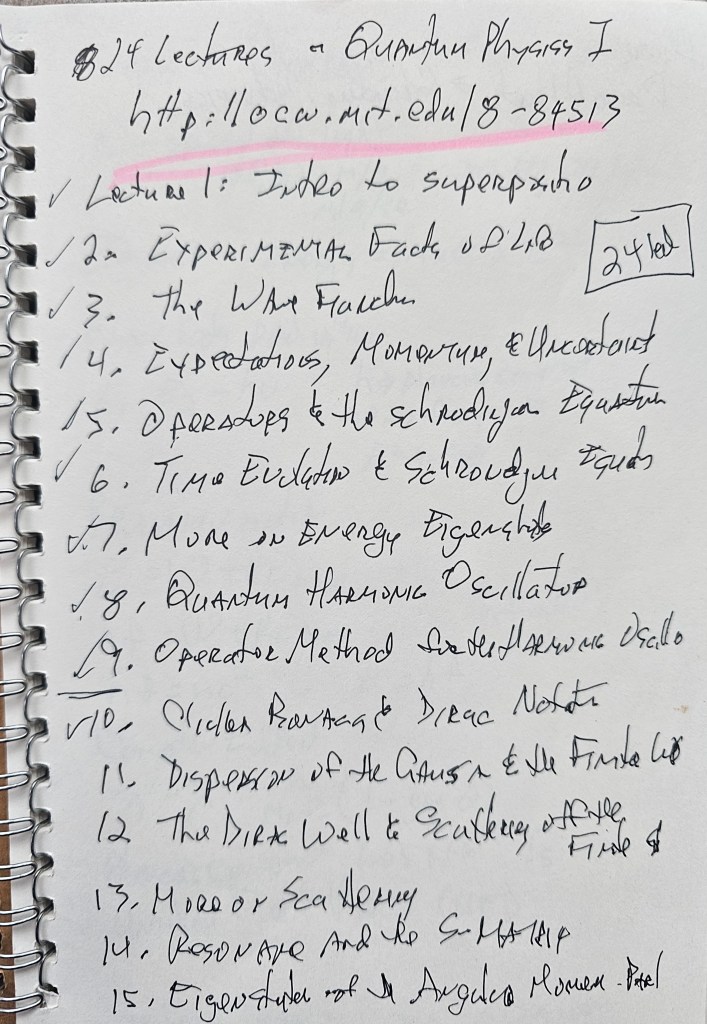 24 Lectures - Quantum Physics I
http://ocw.mit.edu/8-84513
✓ Lecture 1: Intro to superpositio
✓ 2. Experimental Facts of Life
24 lect
✓ 3. The Wave Function
✓ 4. Expectations, Momentum, & Uncertaint
✓ 5. Operators & the Schrodinger Equation
✓ 6. Time Evolution & Schrondger Equatn
✓ 7. More on Energy Eigenstates
✓ 8. Quantum Harmonic Oscillator
✓ 9. Operator Method for the Harmonic Oscillo
✓ 10. Clicker Bonanza & Dirac Notatn
11. Dispersion of the Gaussn & the Finite
12 The Dirac Well & Scattering off the
Finite
13. More on Scattering
14. Resonance and the S-Matrix
15. Eigenstates of Angular Momen